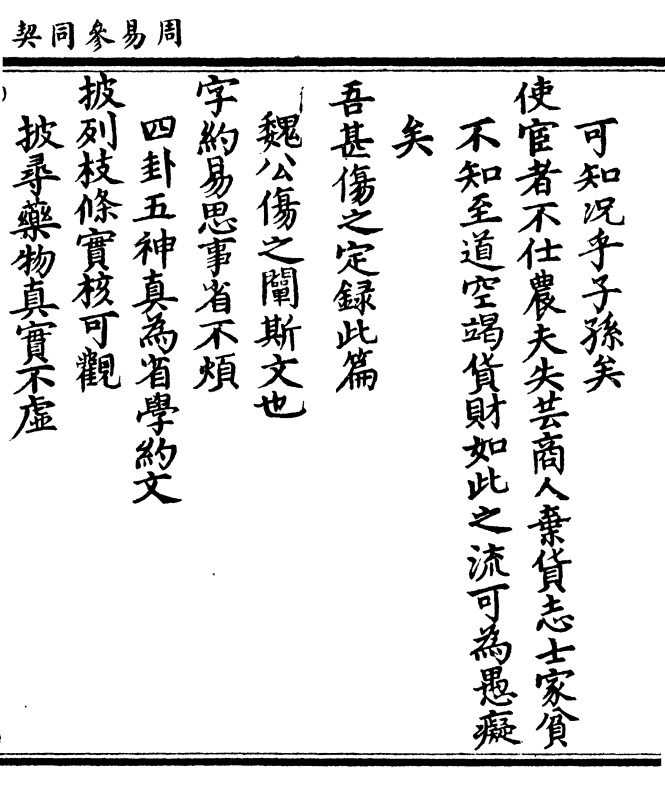 周易參同契
可知况乎子孫矣
使宦者不仕農夫失芸商人棄貨志士家貧
不知至道空竭貨財如此之流可為愚癡
矣
吾甚傷之定録此篇
魏公傷之闡斯文也
字約易思事省不煩
四卦五神真為省學約文
披列枝條實核可觀
披尋藥物真實不虛